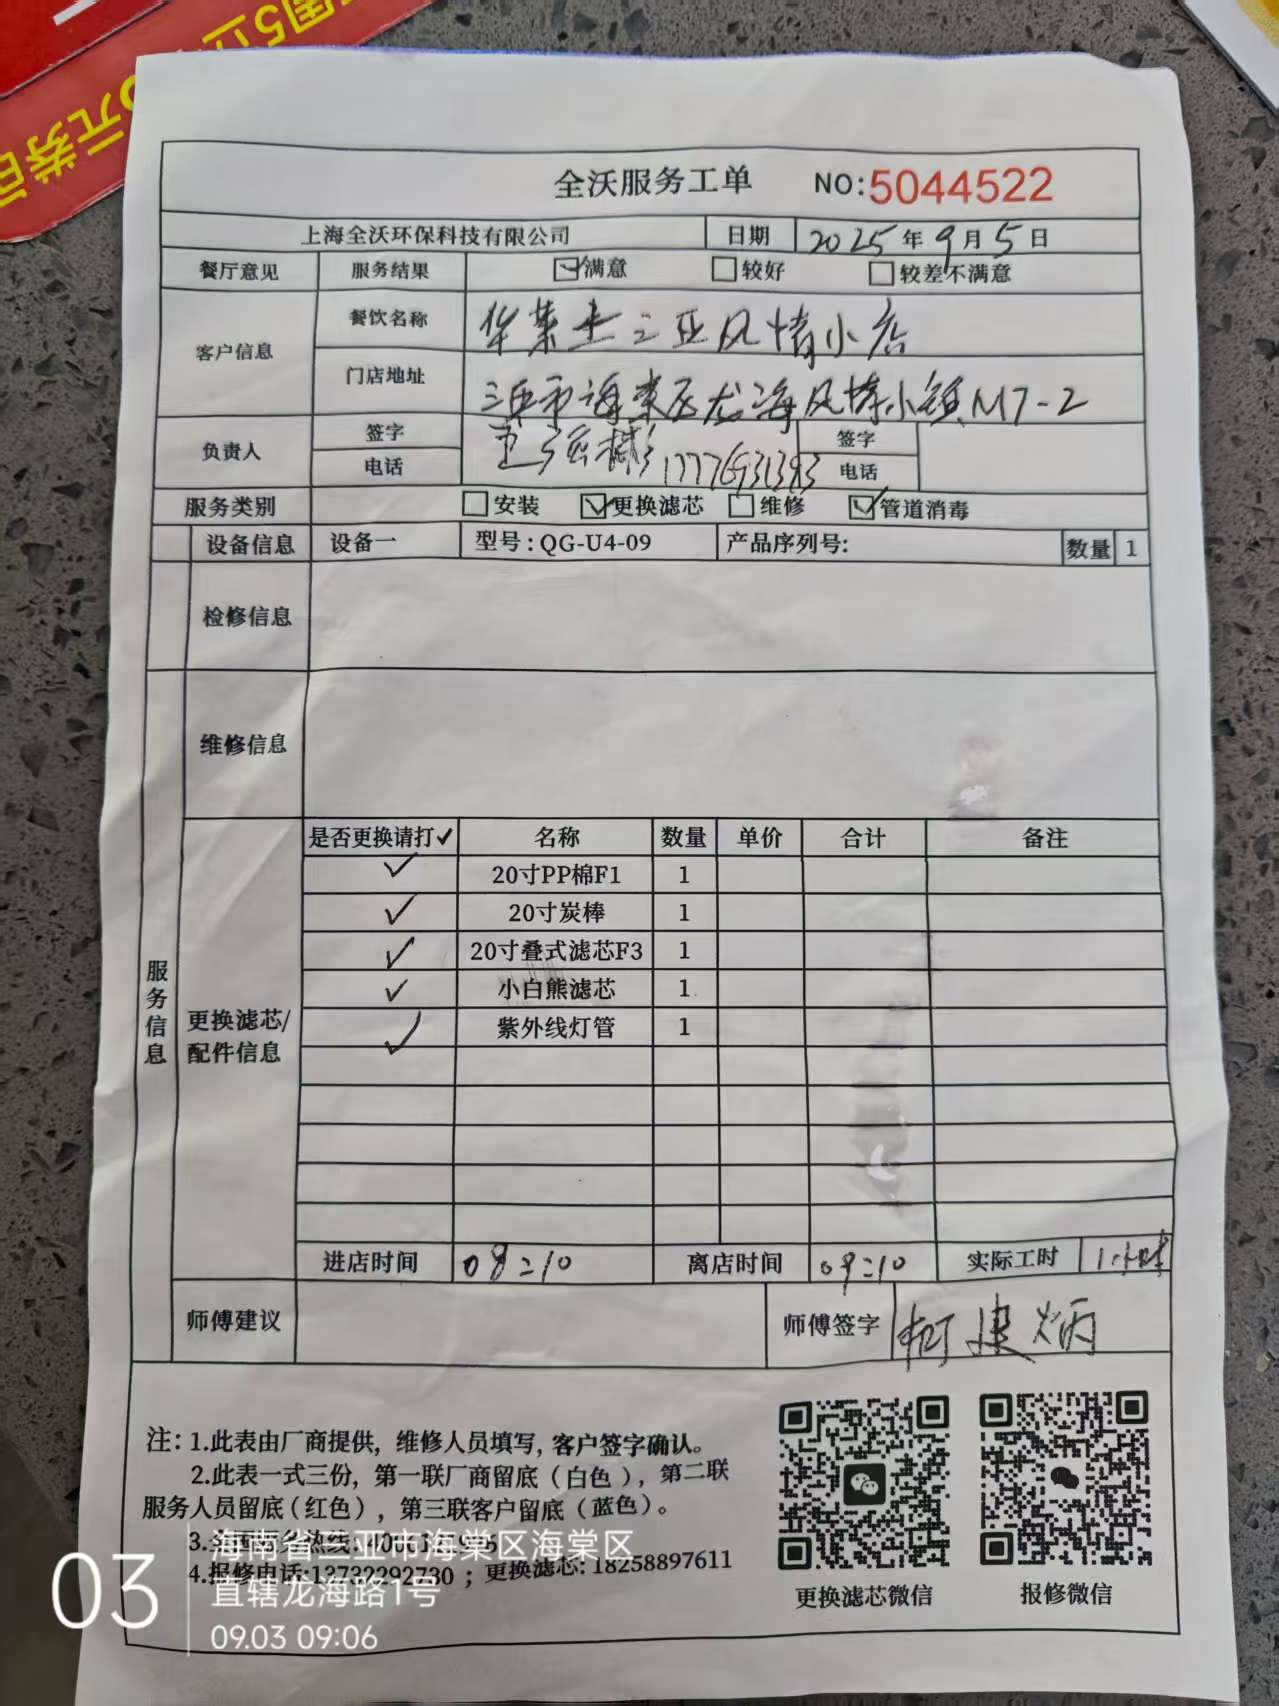 元券
全沃服务工单 NO:5044522
上海全沃环保科技有限公司 日期 2025年9月5日
餐厅意见 服务结果 满意 较好 较差不满意
客户信息 餐饮名称 华莱士三亚风情小店
门店地址 三亚市海棠区龙海风情小镇M7-2
负责人 签字 签字
电话 17776931393 电话
服务类别 安装 更换滤芯 维修 管道消毒
设备信息 设备一 型号:QG-U4-09 产品序列号: 数量 1
检修信息
维修信息
服务信息
更换滤芯/配件信息
是否更换请打✓ 名称 数量 单价 合计 备注
✓ 20寸PP棉F1 1
✓ 20寸炭棒 1
✓ 20寸叠式滤芯F3 1
✓ 小白熊滤芯 1
✓ 紫外线灯管 1
进店时间 08:10 离店时间 09:10 实际工时 1小时
师傅建议 师傅签字 柯建炳
注: 1.此表由厂商提供, 维修人员填写, 客户签字确认。
2.此表一式三份, 第一联厂商留底(白色), 第二联
服务人员留底(红色), 第三联客户留底(蓝色)。
4.报修电话:13732292730 ; 更换滤芯: 18258897611
更换滤芯微信 报修微信
03
海南省三亚市海棠区海棠区
直辖龙海路1号
09.03 09:06